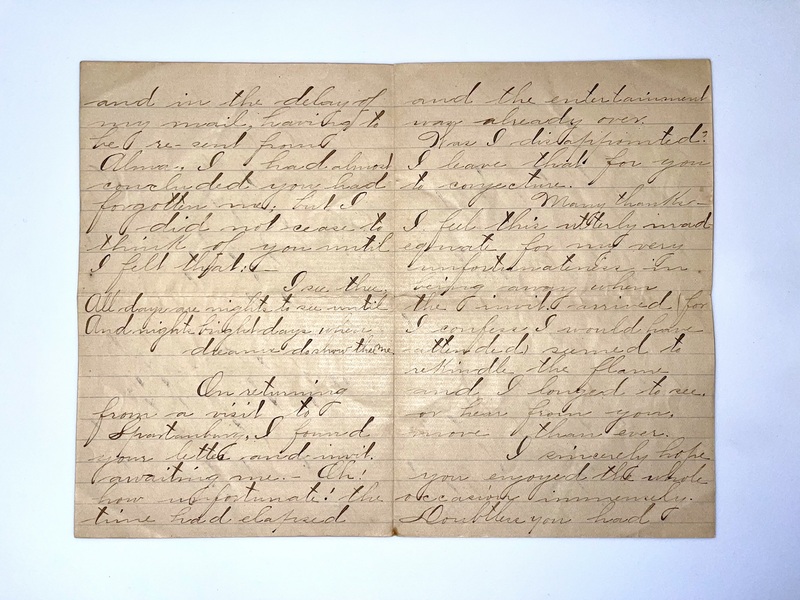 and in the delay of
my mail, having to
be re-sent from
Alma, I had almost
concluded you had
forgotten me; but I
did not cease to
think of you until
I felt that:—
I see thee,
All days are nights to see until
And nights bright days when
dreams do show thee me
On returning
from a visit to
Spartanburg, I found
your letter and invit.
awaiting me.— Ah!
how unfortunate! the
time had elapsed
and the entertainment
was already over.
Was I disappointed?
I leave that for you
to conjecture.
Many thanks—
I feel this utterly inad
equate for my very
unfortunateness in
being away when
the invit. arrived (for
I confess I would have
attended) seemed to
rekindle the flame
and I longed to see.
or hear from you.
more than ever.
I sincerely hope
you enjoyed the whole
occasion immensely.
Doubtless you had